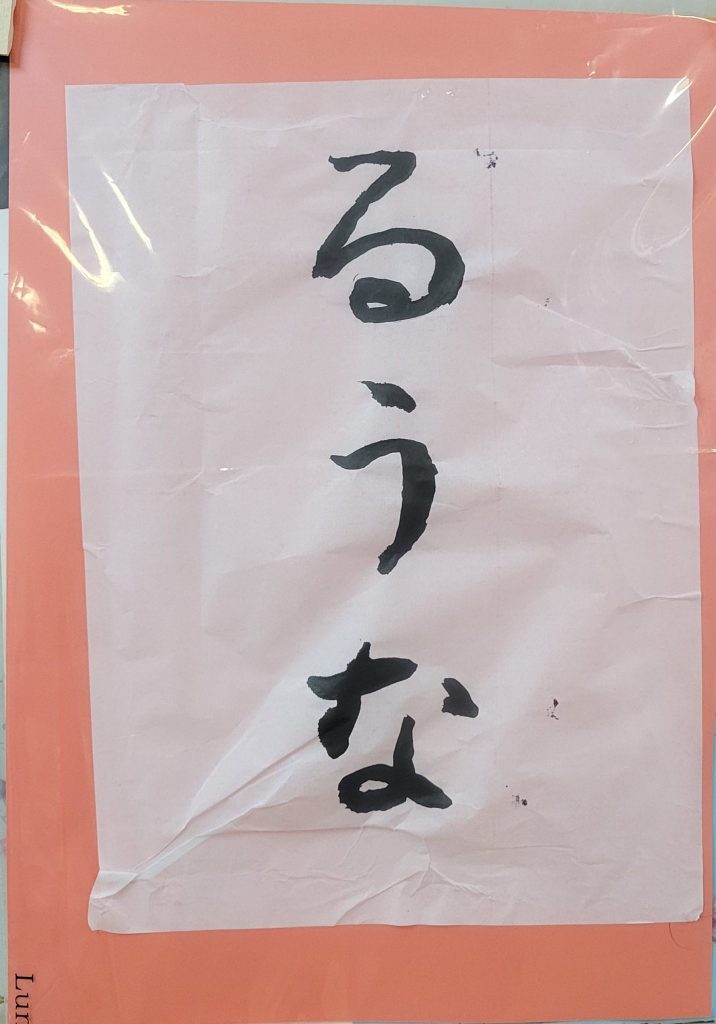 るうな
Lun